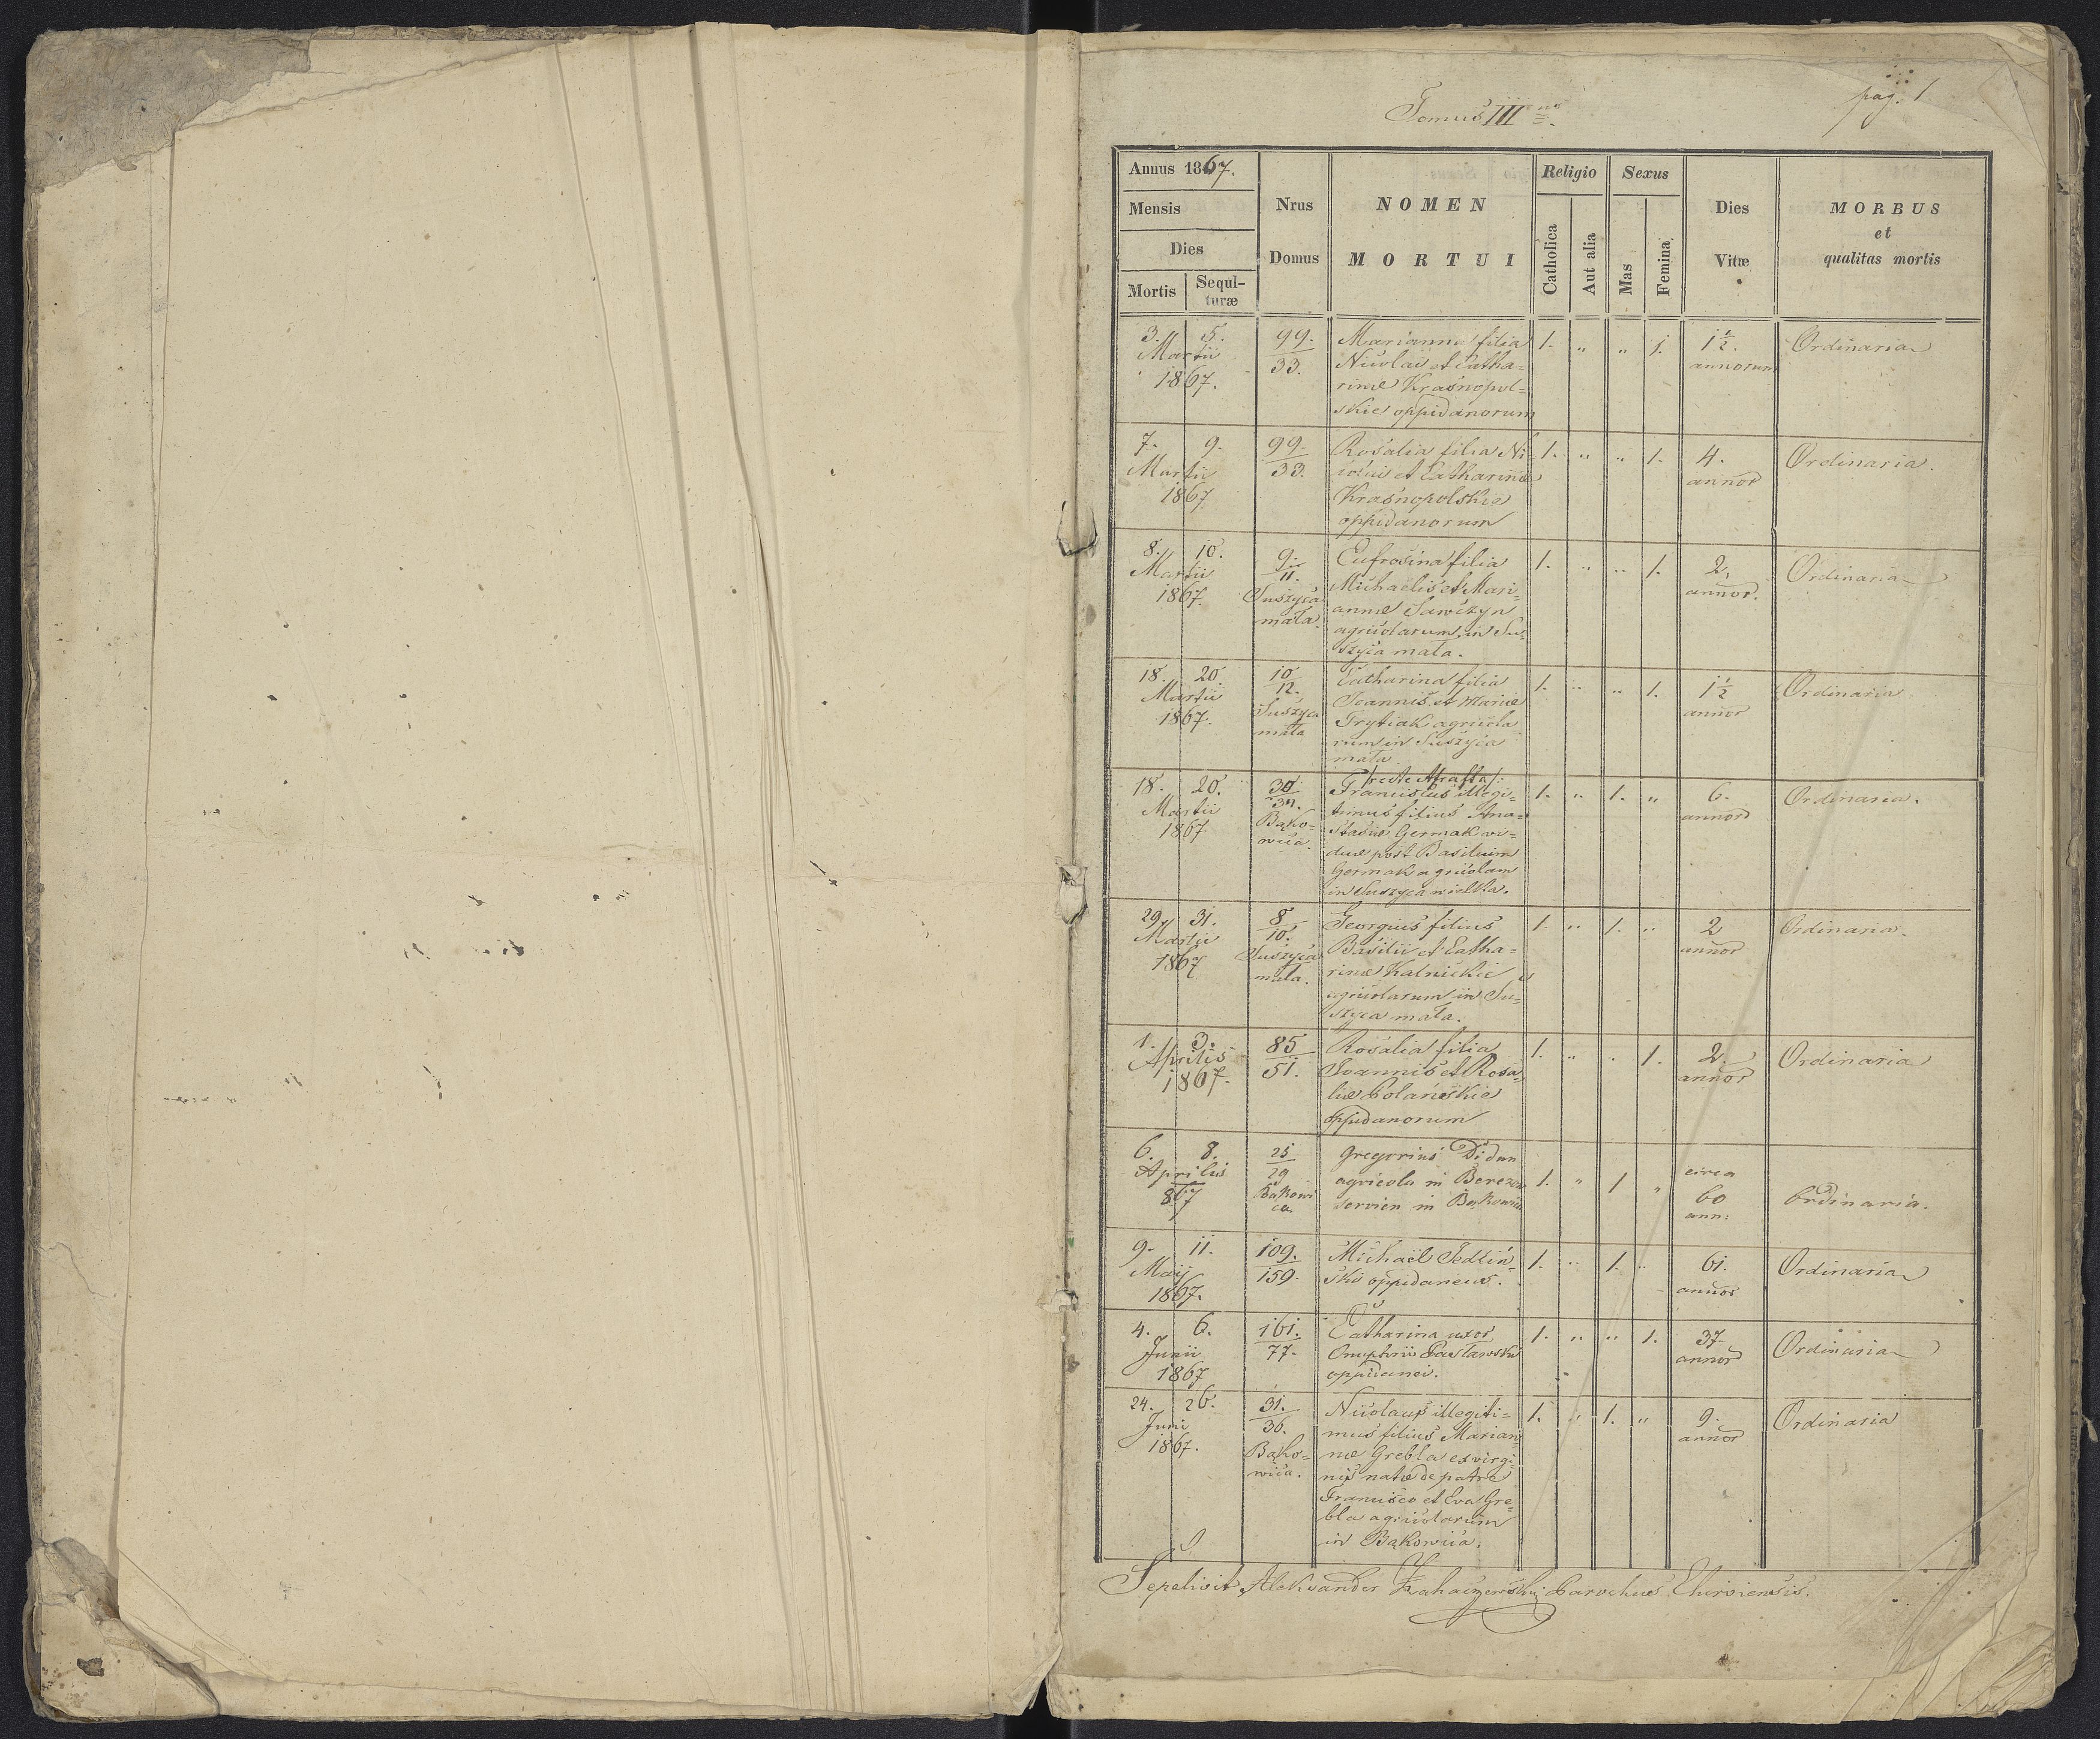 pag. 1
Tomus III
Annus 1867.
Mensis
Dies
Mortis
Sequi-
turæ
Nrus
Domus
NOMEN
MORTUI
Religio
Catholica
Aut alia
Sexus
Mas
Femina
Dies
Vitæ
MORBUS
et
qualitas mortis
3. 5.
Martii
1867.
99.
33.
Marianna filia
Nicolai et Catha=
rinæ Krasnopol=
skie oppidanorum
1. " " 1.
1½.
annorum
Ordinaria
7. 9.
Martii
1867
99.
33.
Rosalia filia Ni=
colai et Catharinæ
Krasnopolskie
oppidanorum
1. " " 1.
4.
annor
Ordinaria.
8. 10.
Martii
1867.
9.
11.
Suszyca
mała.
Eufrosina filia
Michaelis et Mari=
annæ Sawczyn
agricolarum in Su=
szyca mała.
1. " " 1.
2.
annor.
Ordinaria
18. 20
Martii
1867.
10
12.
Suszyca
mała
Catharina filia
Joannis et Mariæ
Frytiak agricola
rum in Suszyca
mała
1. " " 1.
1½
annor
Ordinaria
18. 20.
Martii
1867
30
34.
Bąko=
wica.
Franciscus illegi=
timus filius Ana=
stasiæ Germak vi=
duæ post Basilium
Germak agricolam
in Suszyca wielka.
1. " 1. "
6.
annor
Ordinaria.
29. 31.
Martii
1867
8
10.
Suszyca
mała.
Georgius filius
Basilii et Catha=
rinæ Kalnickie
agricolarum in Su=
szyca mała.
1. " 1. "
2
annor
Ordinaria.
1. 3.
Aprilis
1867.
85
51.
Rosalia filia
Joannis et Rosa=
liæ Polańskie
oppidanorum
1. " " 1.
2.
annor
Ordinaria
6. 8.
Aprilis
867
25
29
Bąkowi
ca
Gregorius Didun
agricola in Berezow
servien in Bąkowica
1. " 1 "
circa
60
ann:
Ordinaria.
9. 11.
Maij
1867.
109.
159.
Michael Jedzin=
ski oppidaneus.
1. " 1. "
61.
annor
Ordinaria
4. 6.
Junii
1867
161.
77.
Catharina uxor
Onuphrii Pasławski
oppidanei.
1. " " 1.
37
annor
Ordinaria
24. 26.
Juni
1867.
31.
36.
Bąko=
wica.
Nicolaus illegiti=
mus filius Marian=
næ Grebla ex virgi=
nis natæ de patre
Francisco et Eva Gre=
bla agricolarum
in Bąkowica.
1. " 1. "
9.
annor
Ordinaria
Sepelivit Aleksander Parochus Chiroviensis.